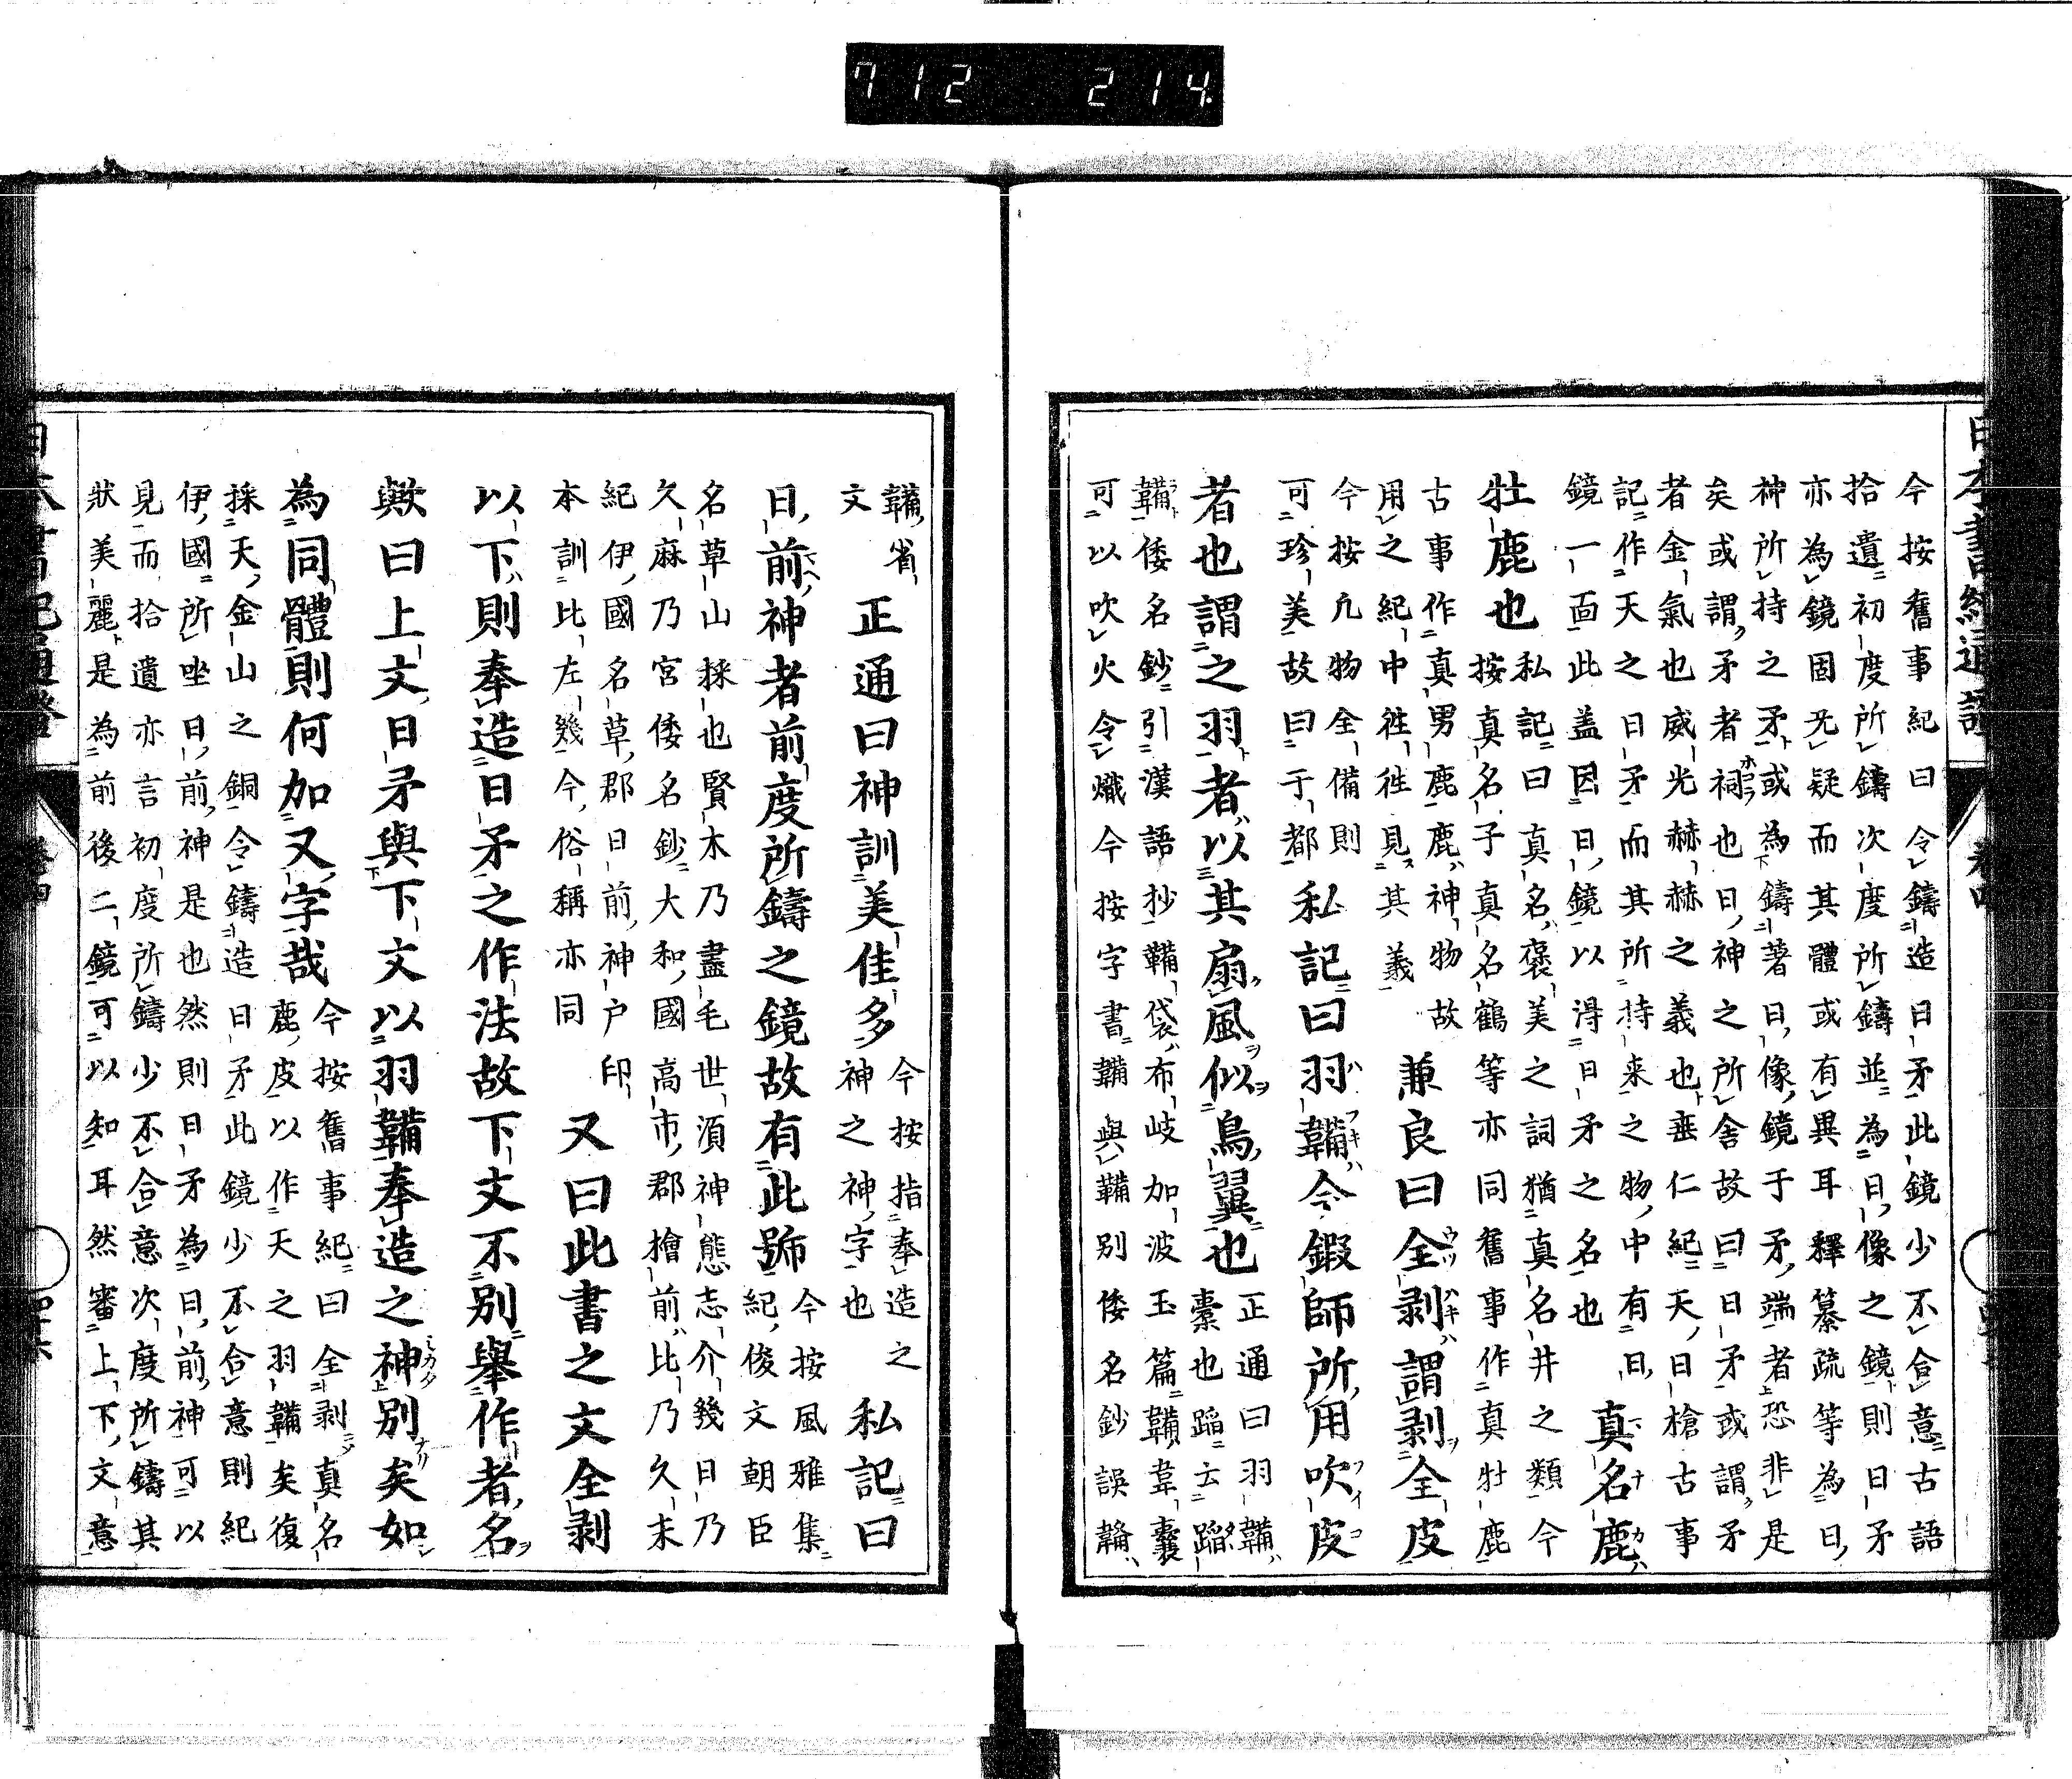 日本書紀通證 卷四
今按舊事紀曰令鑄造日矛此鏡少不合意古語
拾遺初度所鑄次度所鑄並為日像之鏡則日矛
亦為鏡固无疑而其體或有異耳釋纂疏等為日
神所持之矛或為鑄著日像鏡于矛端者恐非是
矣或謂矛者祠也日神之所舍故曰日矛或謂矛
者金氣也威光赫赫之義也垂仁紀天日槍古事
記作天之日矛而其所持来之物中有日
鏡一面此盖因日鏡以得日矛之名也
真名鹿
牡鹿也
私記曰真名褒美之詞猶真名井之類今
按真名子真名鶴等亦同舊事作真牡鹿
古事作真男鹿鹿神物故
用之紀中往往見其義
兼良曰全剥謂剥全皮
今按凡物全備則
可珍美故曰于都
私記曰羽韛今鍛師所用吹皮
者也謂之羽者以其扇風似鳥翼也
正通曰羽韛
橐也蹈云蹈
韛倭名鈔引漢語抄韛袋布岐加波玉篇韛韋囊
可以吹火令熾今按字書韛與鞴別倭名鈔誤鞴
韛省
文
正通曰神訓美佳多
今按指奉造之
神之神字也
私記曰
日前神者前度所鑄之鏡故有此號
今按風雅集
紀俊文朝臣
名草山採也賢木乃盡毛世須神態志介幾日乃
久麻乃宮倭名鈔大和國高市郡檜前比乃久末
紀伊國名草郡日前神戸印
本訓比左幾今俗稱亦同
又曰此書之文全剥
以下則奉造日矛之作法故下文不別舉作者名
歟曰上文日矛與下文以羽韛奉造之神別矣如
為同體則何加又字哉
今按舊事紀曰全剥真名
鹿皮以作天之羽韛矣復
採天金山之銅令鑄造日矛此鏡少不合意則紀
伊國所坐日前神是也然則日矛為日前神可以
見而拾遺亦言初度所鑄少不合意次度所鑄其
狀美麗是為前後二鏡可以知耳然審上下文意
712 214